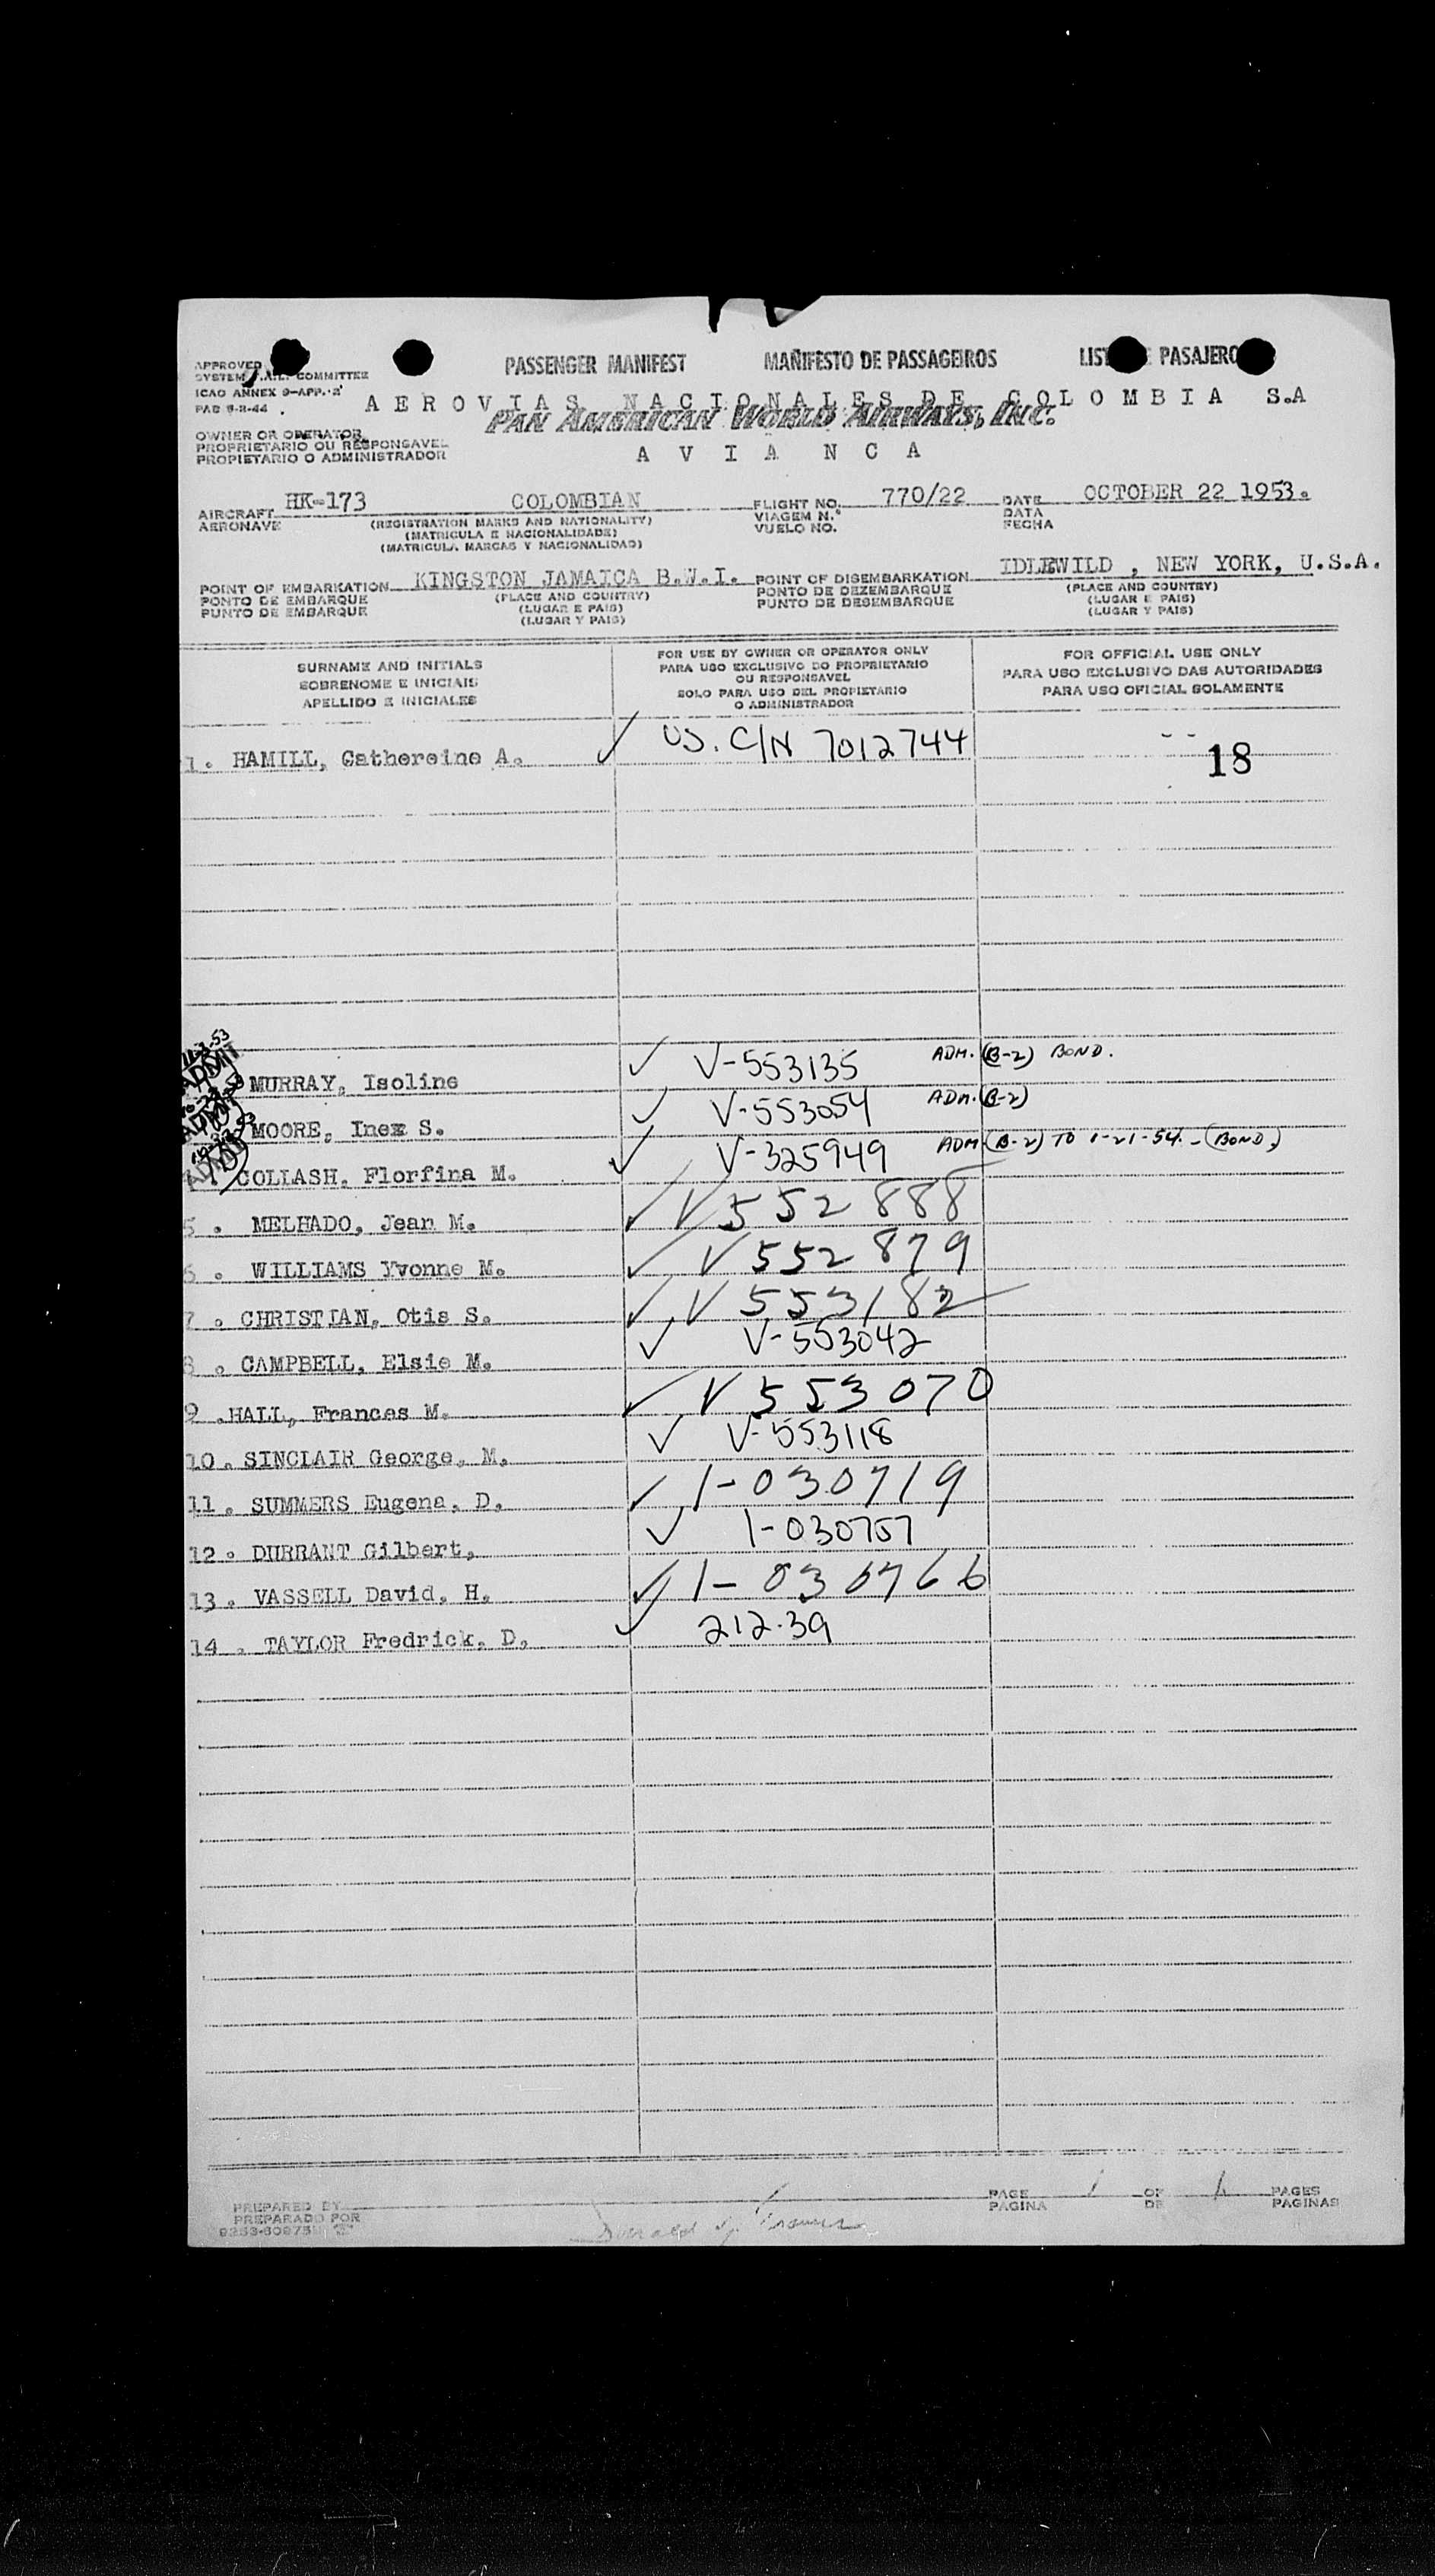 PASSENGER MANIFEST MAÑIFESTO DE PASSAGEIROS LIST PASAJERO
APPROVED
SYSTEM COMMITTEE
ICAO ANNEX 9-APP. 2
AEROVIAS NACIONALES DE COLOMBIA S.A
PAN AMERICAN WORLD AIRWAYS, INC.
OWNER OR OPERATOR
PROPRIETARIO OU RESPONSAVEL
PROPIETARIO O ADMINISTRADOR
AVIANCA
AIRCRAFT HK-173 COLOMBIAN FLIGHT NO. 770/22 DATE OCTOBER 22 1953.
AERONAVE (REGISTRATION MARKS AND NATIONALITY) VIAGEM N.º DATA
(MATRICULA E NACIONALIDADE) VUELO NO. FECHA
(MATRICULA. MARCAS Y NACIONALIDAD)
POINT OF EMBARKATION KINGSTON JAMAICA B.W.I. POINT OF DISEMBARKATION IDLEWILD , NEW YORK, U.S.A.
PONTO DE EMBARQUE (PLACE AND COUNTRY) PONTO DE DEZEMBARQUE (PLACE AND COUNTRY)
PUNTO DE EMBARQUE (LUGAR E PAIS) PUNTO DE DESEMBARQUE (LUGAR E PAIS)
(LUGAR Y PAIS) (LUGAR Y PAIS)
SURNAME AND INITIALS
SOBRENOME E INICIAIS
APELLIDO E INICIALES
FOR USE BY OWNER OR OPERATOR ONLY
PARA USO EXCLUSIVO DO PROPRIETARIO
OU RESPONSAVEL
SOLO PARA USO DEL PROPIETARIO
O ADMINISTRADOR
FOR OFFICIAL USE ONLY
PARA USO EXCLUSIVO DAS AUTORIDADES
PARA USO OFICIAL SOLAMENTE
1. HAMILL, Cathereine A. ✓ US. C/N 7012744 18
MURRAY, Isoline ✓ V-553135 ADM. (B-2) BOND.
MOORE, Inez S. ✓ V-553054 ADM. (B-2)
COLLASH, Florfina M. ✓ V-325949 ADM (B-2) TO 1-21-54 - (BOND)
5 . MELHADO, Jean M. ✓ V 552 888
6 . WILLIAMS Yvonne M. ✓ V 552 879
7 . CHRISTIAN, Otis S. ✓ V 553182
8 . CAMPBELL, Elsie M. ✓ V-553042
9 .HALL, Frances M. ✓ V 553 070
10. SINCLAIR George, M. ✓ V-553118
11. SUMMERS Eugena, D. ✓ 1-030719
12. DURRANT Gilbert, ✓ 1-030757
13. VASSELL David, H. ✓ 1-030766
14 . TAYLOR Fredrick, D, ✓ 212.39
PREPARED BY PAGE 1 OF 1 PAGES
PREPARADO POR PAGINA DE PAGINAS